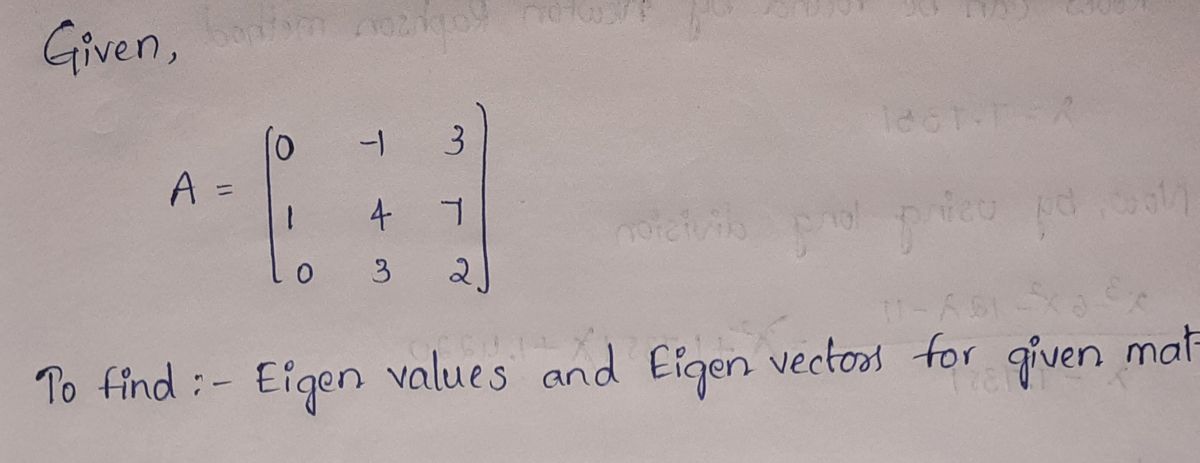 Given,
A = [0 -1 3
1 4 7
0 3 2]
To find :- Eigen values and Eigen vectors for given mat